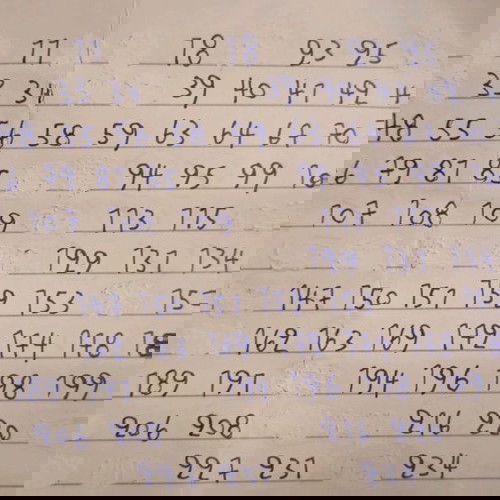 11 18 93 95
33 34 39 40 41 42 4
54 58 59 63 64 67 70 48 55 55
94 95 99 106 79 81 85
109 113 115 107 108
129 131 134
153 151 147 150 151 159
174 178 162 163 169 172
198 199 189 191 194 196
220 206 208 216
227 231 234